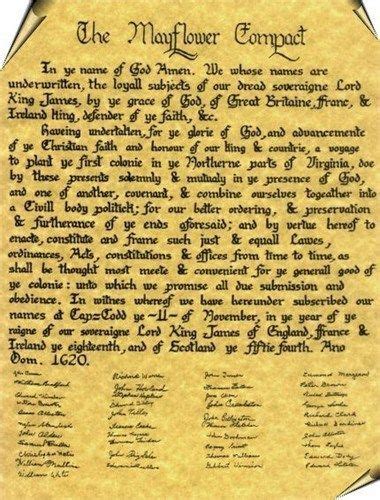 The Mayflower Compact
In ye name of God Amen. We whose names are
underwritten, the loyall subjects of our dread soveraigne Lord
King James, by ye grace of God, of Great Britaine, Franc, &
Ireland King, defender of ye faith, &c.
Haveing undertaken, for ye glorie of God, and advancemente
of ye Christian faith and honour of our king & countrie, a voyage
to plant ye first colonie in ye Northerne parts of Virginia, doe
by these presents solemnly & mutualy in ye presence of God,
and one of another, covenant, & combine ourselves togeather into
a Civill body politick; for our better ordering, & preservation
& furtherance of ye ends aforesaid; and by vertue hereof to
enacte, constitute and frame such just & equall Lawes,
ordinances, Acts, constitutions & offices from time to time, as
shall be thought most meete & convenient for ye generall good of
ye colonie: unto which we promise all due submission and
obedience. In witnes whereof we have hereunder subscribed our
names at Cap=Codd ye ~11~ of November, in ye year of ye
raigne of our soveraigne Lord King James of England, France &
Ireland ye eighteenth, and of Scotland ye fiftie fourth. Ano
Dom. 1620.
William Bradford
Isaac Allerton
John Alden
William Mullins
William White
Richard Warren
John Howland
Stephen Hopkins
Edward Tilley
John Tilley
John Turner
John Billington
Thomas Williams
Gilbert Winslow
Edmund Margeson
Peter Brown
Richard Clark
John Allerton
Edward Doty